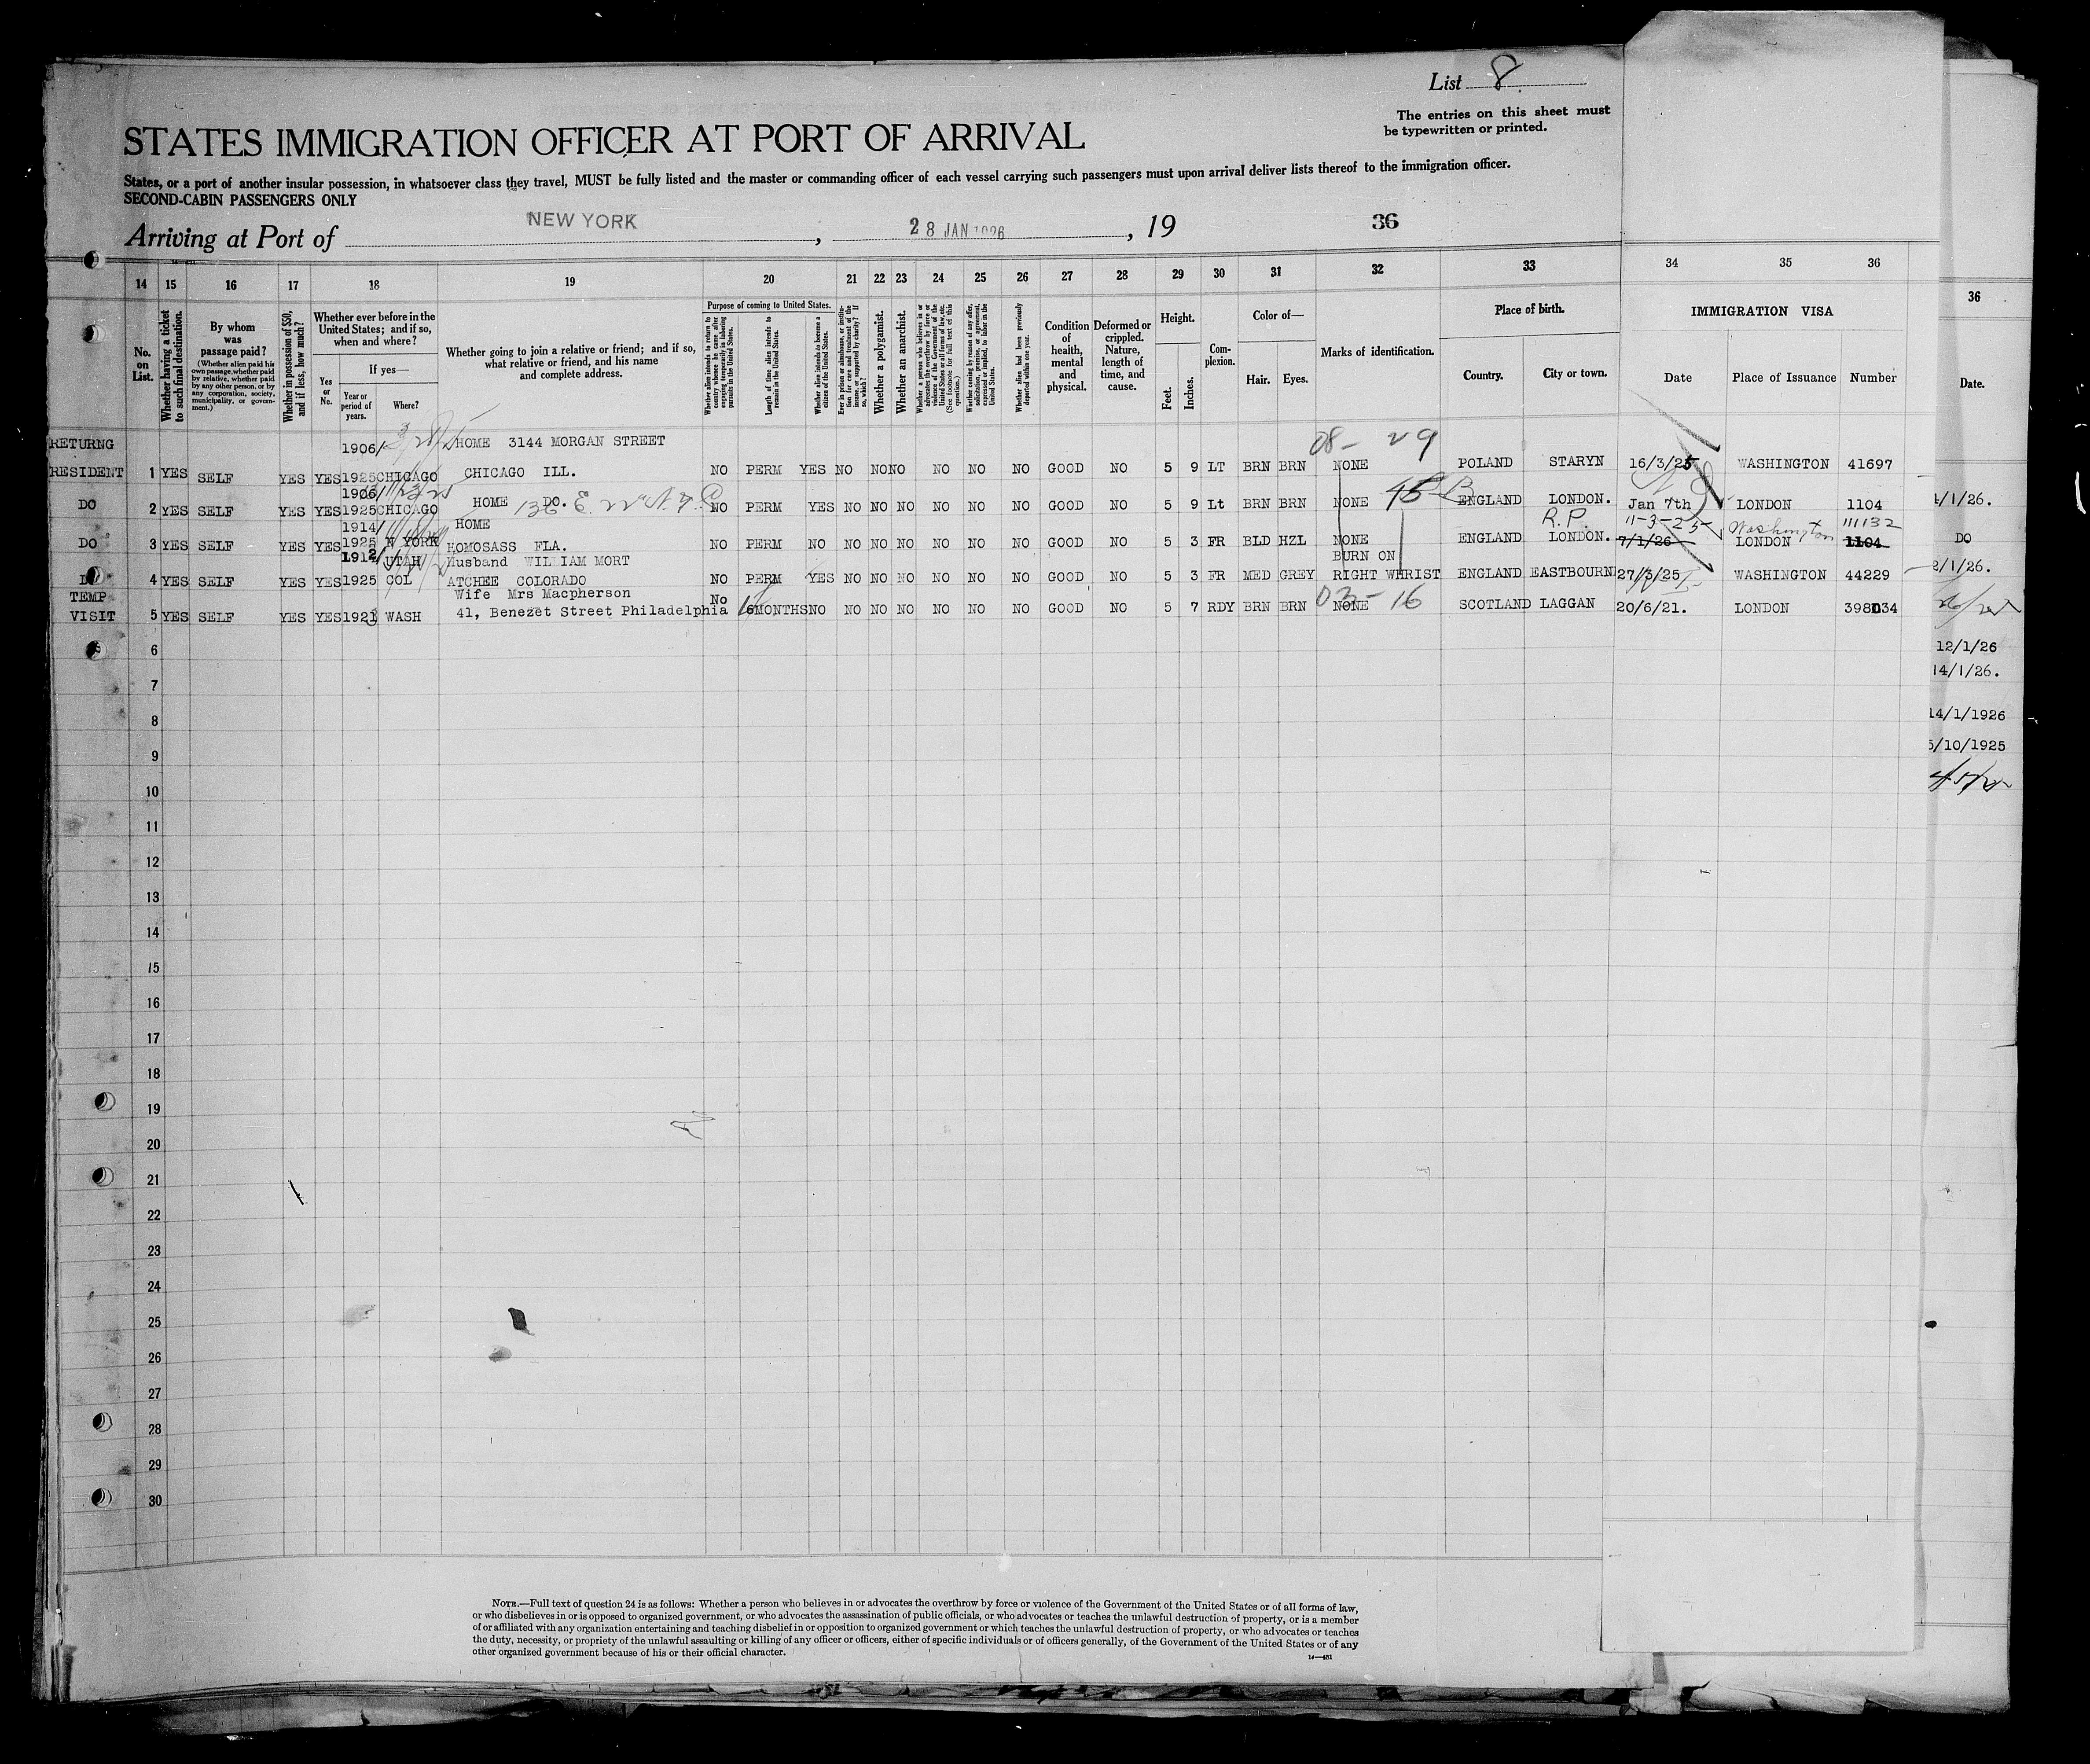 List 8.
The entries on this sheet must
be typewritten or printed.
STATES IMMIGRATION OFFICER AT PORT OF ARRIVAL
States, or a port of another insular possession, in whatsoever class they travel, MUST be fully listed and the master or commanding officer of each vessel carrying such passengers must upon arrival deliver lists thereof to the immigration officer.
SECOND-CABIN PASSENGERS ONLY
Arriving at Port of NEW YORK, 28 JAN 1926, 19 36
14 15 16 17 18 19 20 21 22 23 24 25 26 27 28 29 30 31 32 33 34 35 36
36
No. on List.
Whether having a ticket to such final destination.
By whom was passage paid?
(Whether alien paid his own passage, whether paid by relative, whether paid by any other person, or by any corporation, society, municipality, or government.)
Whether in possession of $50, and if less, how much?
Whether ever before in the United States; and if so, when and where?
Yes or No.
If yes—
Year or period of years.
Where?
Whether going to join a relative or friend; and if so, what relative or friend, and his name and complete address.
Purpose of coming to United States.
Whether alien intends to return to country whence he came after engaging temporarily in laboring pursuits in the United States.
Length of time alien intends to remain in the United States.
Whether alien intends to become a citizen of the United States.
Ever in prison or almshouse, or institution for care and treatment of the insane, or supported by charity? If so, which?
Whether a polygamist.
Whether an anarchist.
Whether a person who believes in or advocates the overthrow by force or violence of the Government of the United States or all forms of law, etc. (See footnote for full text of this question.)
Whether coming by reason of any offer, solicitation, promise, or agreement, expressed or implied, to labor in the United States.
Whether alien had been previously deported within one year.
Condition of health, mental and physical.
Deformed or crippled. Nature, length of time, and cause.
Height.
Feet. Inches.
Complexion.
Color of—
Hair. Eyes.
Marks of identification.
Place of birth.
Country. City or town.
IMMIGRATION VISA
Date Place of Issuance Number
Date.
RETURNG 1906/ HOME 3144 MORGAN STREET 08- 29
RESIDENT 1 YES SELF YES YES 1925 CHICAGO CHICAGO ILL. NO PERM YES NO NO NO NO NO NO GOOD NO 5 9 LT BRN BRN NONE POLAND STARYN 16/3/25 WASHINGTON 41697
1906/
DO 2 YES SELF YES YES 1925 CHICAGO HOME DO. NO PERM YES NO NO NO NO NO NO GOOD NO 5 9 Lt BRN BRN NONE ENGLAND LONDON. Jan 7th LONDON 1104 4/1/26.
1914/ HOME R.P. 11-3-25 Washington 111132
DO 3 YES SELF YES YES 1925 N YORK HOMOSASS FLA. NO PERM NO NO NO NO NO NO NO GOOD NO 5 3 FR BLD HZL NONE ENGLAND LONDON. 7/1/26 LONDON 1104 DO
1912/ UTAH Husband WILLIAM MORT BURN ON
4 YES SELF YES YES 1925 COL ATCHEE COLORADO NO PERM YES NO NO NO NO NO NO GOOD NO 5 3 FR MED GREY RIGHT WHRIST ENGLAND EASTBOURN 27/3/25 WASHINGTON 44229 2/1/26.
TEMP Wife Mrs Macpherson 03- 16
VISIT 5 YES SELF YES YES 1921 WASH 41, Benezet Street Philadelphia NO 6MONTHS NO NO NO NO NO NO NO GOOD NO 5 7 RDY BRN BRN NONE SCOTLAND LAGGAN 20/6/21. LONDON 398034
6 12/1/26
7 14/1/26.
8 14/1/1926
9 5/10/1925
10
11
12
13
14
15
16
17
18
19
20
21
22
23
24
25
26
27
28
29
30
NOTE.—Full text of question 24 is as follows: Whether a person who believes in or advocates the overthrow by force or violence of the Government of the United States or of all forms of law,
or who disbelieves in or is opposed to organized government, or who advocates the assassination of public officials, or who advocates or teaches the unlawful destruction of property, or is a member
of or affiliated with any organization entertaining and teaching disbelief in or opposition to organized government or which teaches the unlawful destruction of property, or who advocates or teaches
the duty, necessity, or propriety of the unlawful assaulting or killing of any officer or officers, either of specific individuals or of officers generally, of the Government of the United States or of any
other organized government because of his or their official character.
14—481